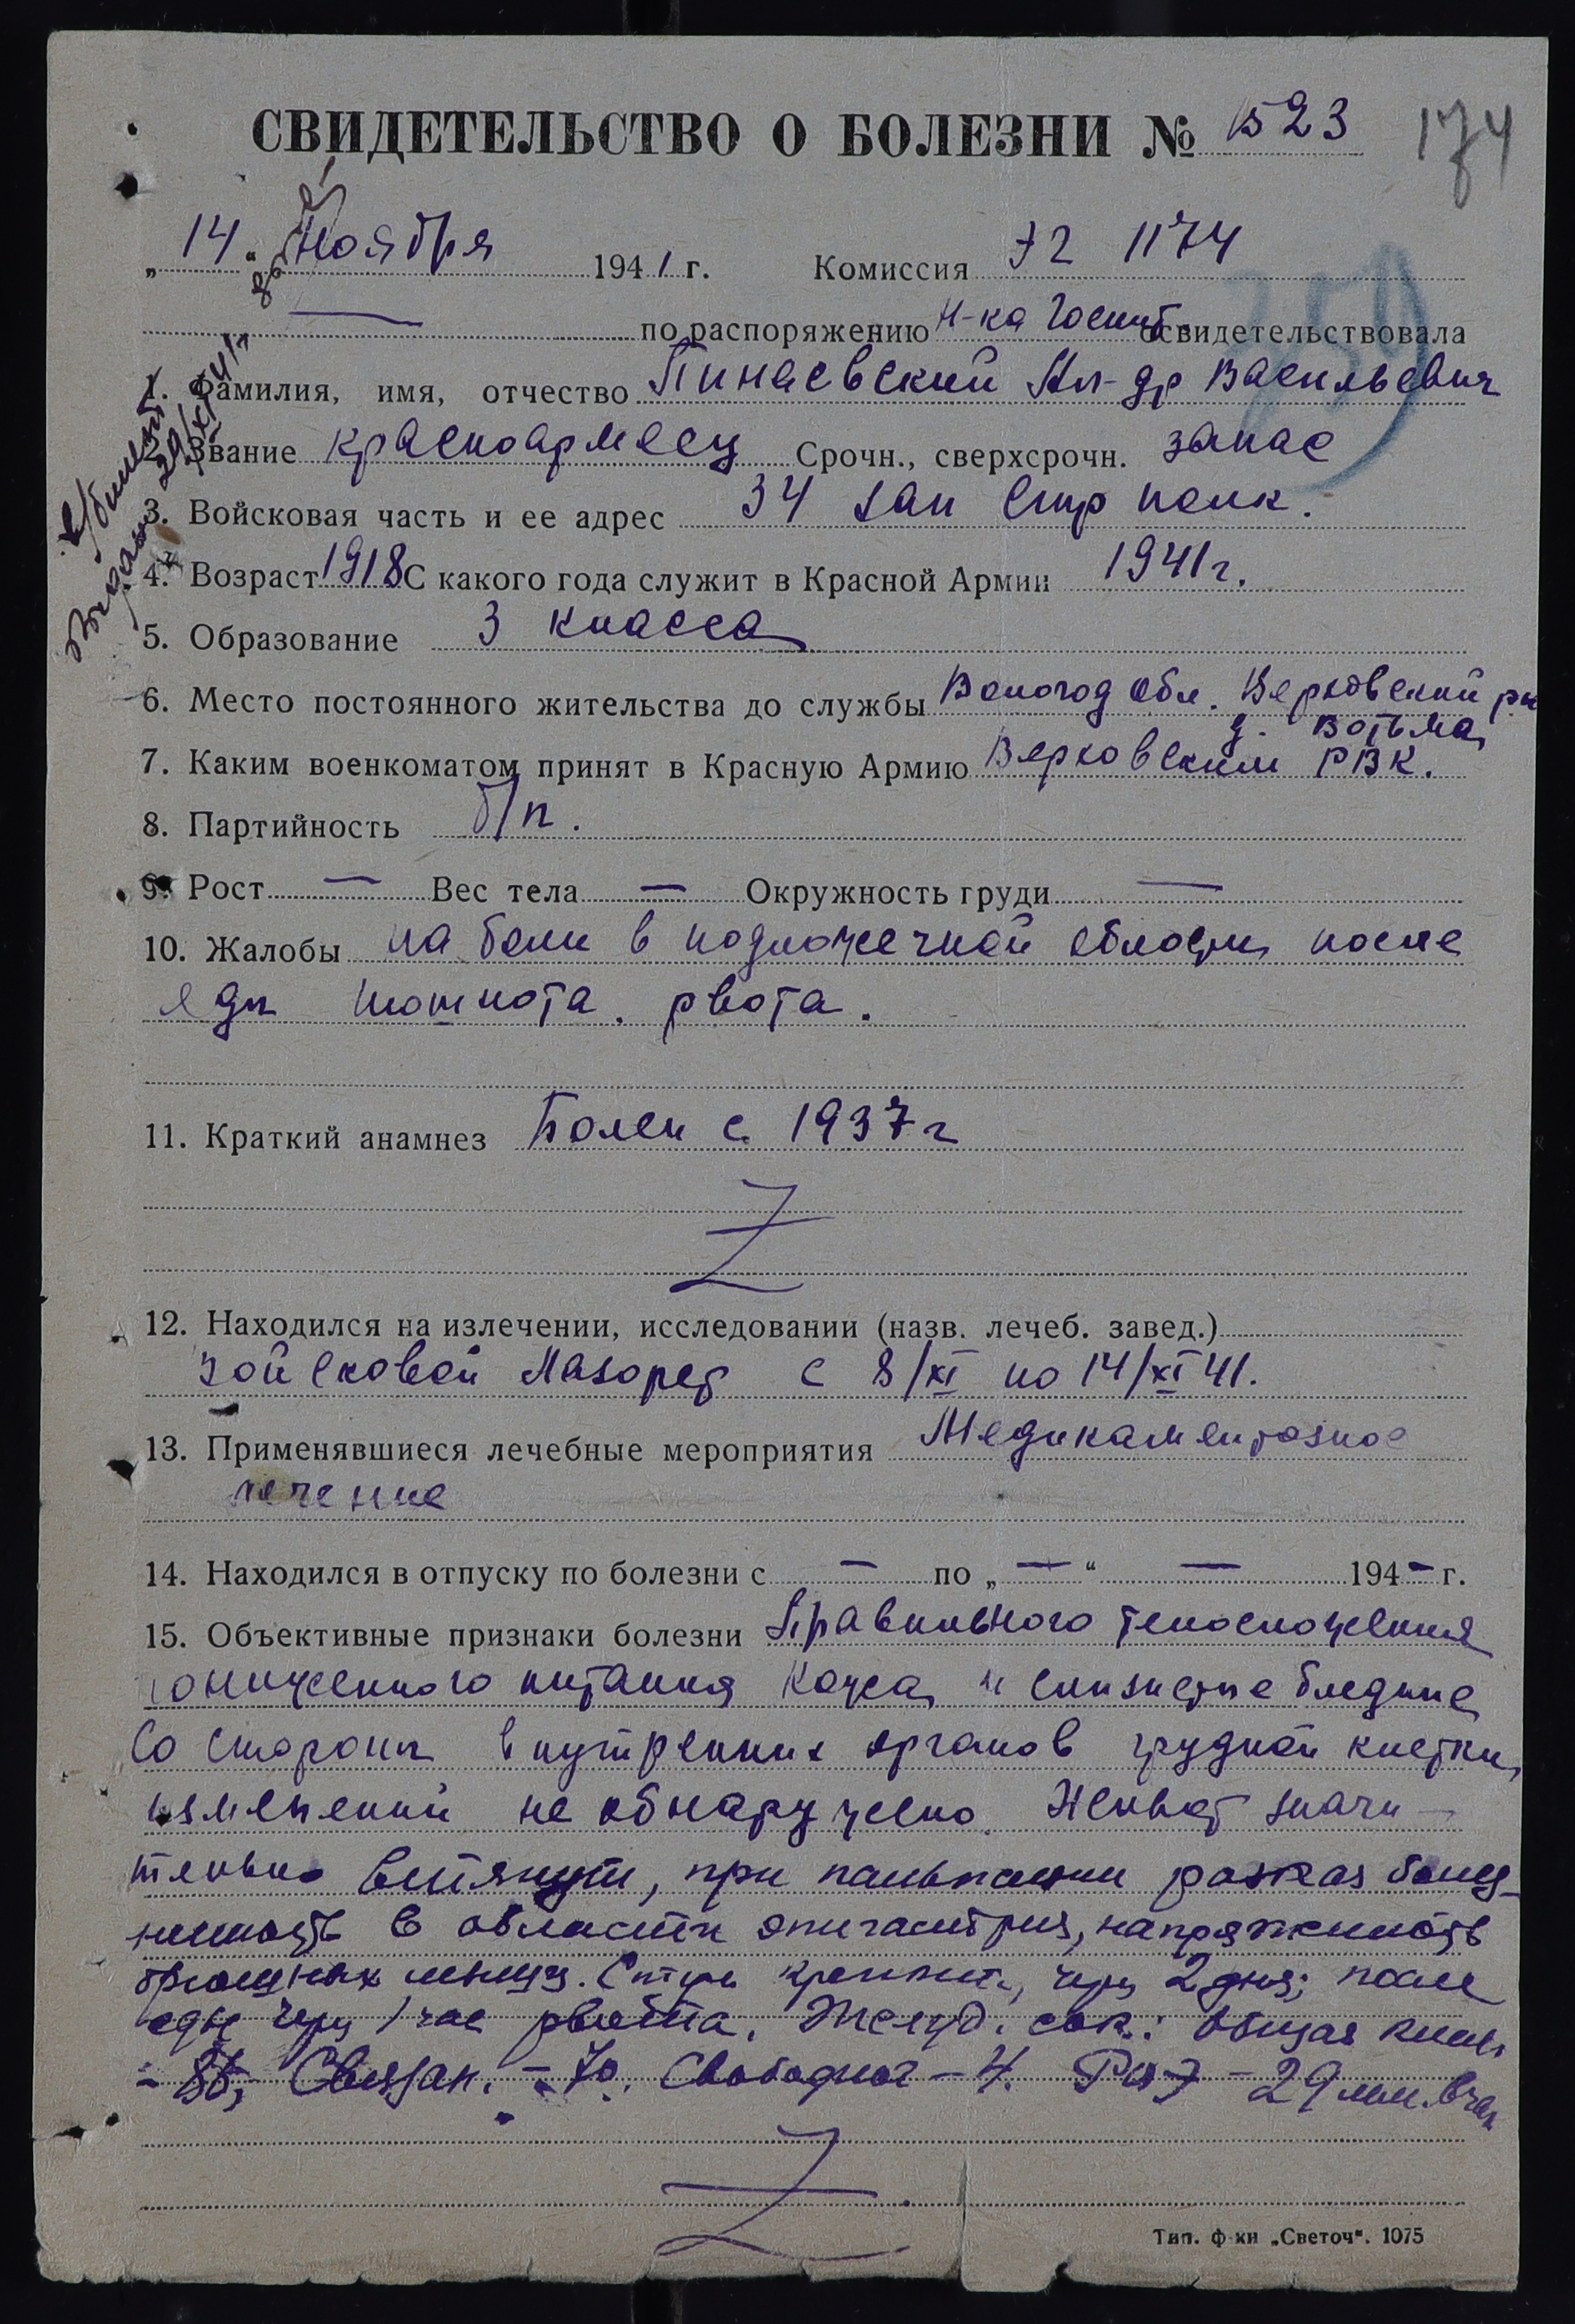 СВИДЕТЕЛЬСТВО О БОЛЕЗНИ № 1523
174
„14“ Ноября 1941 г. Комиссия ЭГ 1174
259
по распоряжению Н-ка Госпит. освидетельствовала
1. Фамилия, имя, отчество Пинаевский Ал-др Васильевич
2. Звание красноармеец Срочн., сверхсрочн. запас
3. Войсковая часть и ее адрес 34 зап Стр полк.
4. Возраст 1918 С какого года служит в Красной Армии 1941 г.
5. Образование 3 класса
6. Место постоянного жительства до службы Вологод обл. Верховский рн
д. Вотьма
7. Каким военкоматом принят в Красную Армию Верховским РВК.
8. Партийность б/п.
9. Рост — Вес тела — Окружность груди —
10. Жалобы на боли в подложечной области после
еды тошнота. рвота.
11. Краткий анамнез Болен с 1937 г
Z
12. Находился на излечении, исследовании (назв. лечеб. завед.)
войсковой лазарет с 8/XI по 14/XI 41.
13. Применявшиеся лечебные мероприятия Медикаментозное
лечение
14. Находился в отпуску по болезни с — по „—“ — 194— г.
15. Объективные признаки болезни Правильного телосложения
пониженного питания Кожа и слизистые бледные
Со стороны внутренних органов грудной клетки
изменений не обнаружено. Живот значи-
тельно втянут, при пальпации резкая болез-
ненность в области эпигастрия, напряженность
брюшных мышц. Стул через 2 дня; после
еды через 1 час рвота. Желуд. сок.: общая кислт.
Связан. - 70. Свободная - 4. РОЭ - 29 мм. в час
Z
Тип. ф-ки „Светоч“. 1075